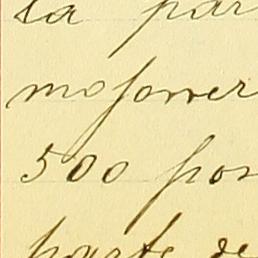 la par
mojoner
500 por
parte de